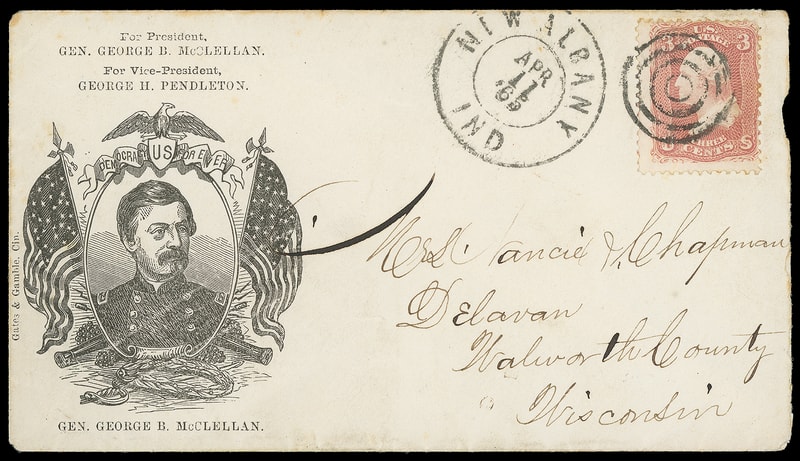 For President,
GEN. GEORGE B. McCLELLAN.
For Vice-President,
GEORGE H. PENDLETON.
DEMOCRACY FOR EVER
U S
Gates & Gamble, Cin.
GEN. GEORGE B. McCLELLAN.
NEW ALBANY
APR
11
'65
IND
U.S.
POSTAGE
3 3
THREE
CENTS
U S
Chapman
Delavan
Walworth County
Wisconsin